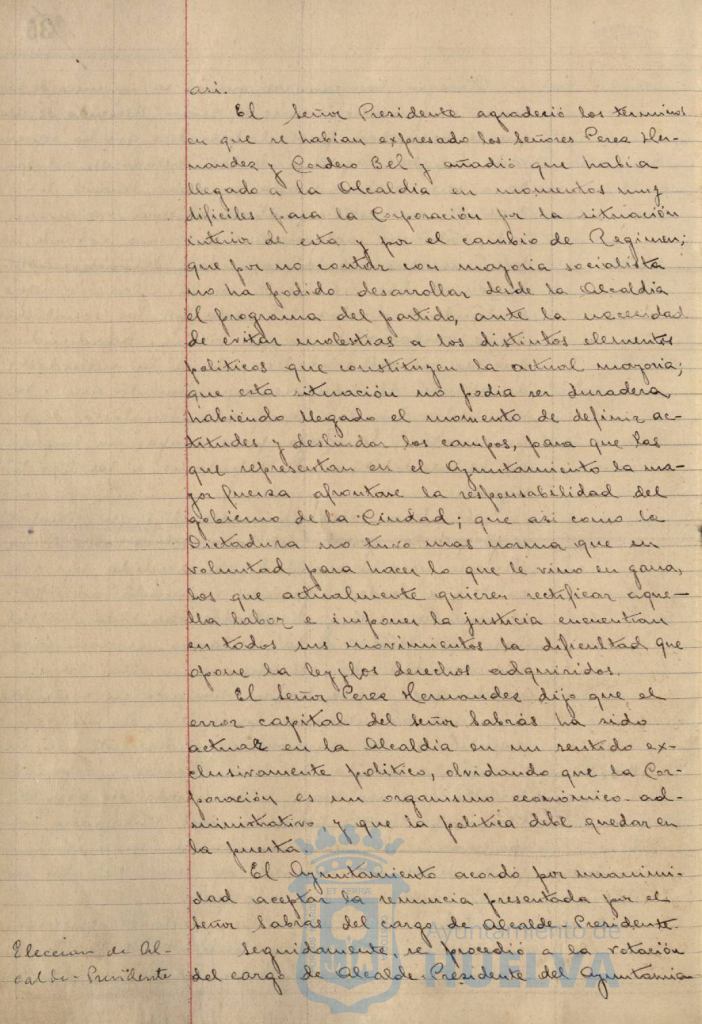 asi.
El Señor Presidente agradeció los términos
en que se habian expresado los Señores Perez Her-
nandez y Cordero Bel y añadió que habia
llegado a la Alcaldia en momentos muy
dificiles para la Corporación por la situación
interior de esta y por el cambio de Regimen;
que por no contar con mayoria socialista
no ha podido desarrollar desde la Alcaldia
el programa del partido, ante la necesidad
de evitar molestias a los distintos elementos
politicos que constituyen la actual mayoria;
que esta situación no podia ser duradera,
habiendo llegado el momento de definir ac-
titudes y deslindar los campos, para que los
que representan en el Ayuntamiento la ma-
yor fuerza afrontase la responsabilidad del
gobierno de la Ciudad; que asi como la
Dictadura no tuvo mas norma que su
voluntad para hacer lo que le vino en gana,
los que actualmente quieren rectificar aque-
lla labor e imponer la justicia encuentran
en todos sus movimientos la dificultad que
opone la ley y los derechos adquiridos.
El Señor Perez Hernandez dijo que el
error capital del Señor Sabrás ha sido
actuar en la Alcaldia en un sentido ex-
clusivamente politico, olvidando que la Cor-
poración es un organismo económico-ad-
ministrativo, y que la politica debe quedar en
la puerta.
El Ayuntamiento acordó por unanimi-
dad aceptar la renuncia presentada por el
Señor Sabrás del cargo de Alcalde-Presidente.
Eleccion de Al-
calde-Presidente
Seguidamente, se procedió a la votación
del cargo de Alcalde-Presidente del Ayuntamien
Ayuntamiento de
HUELVA